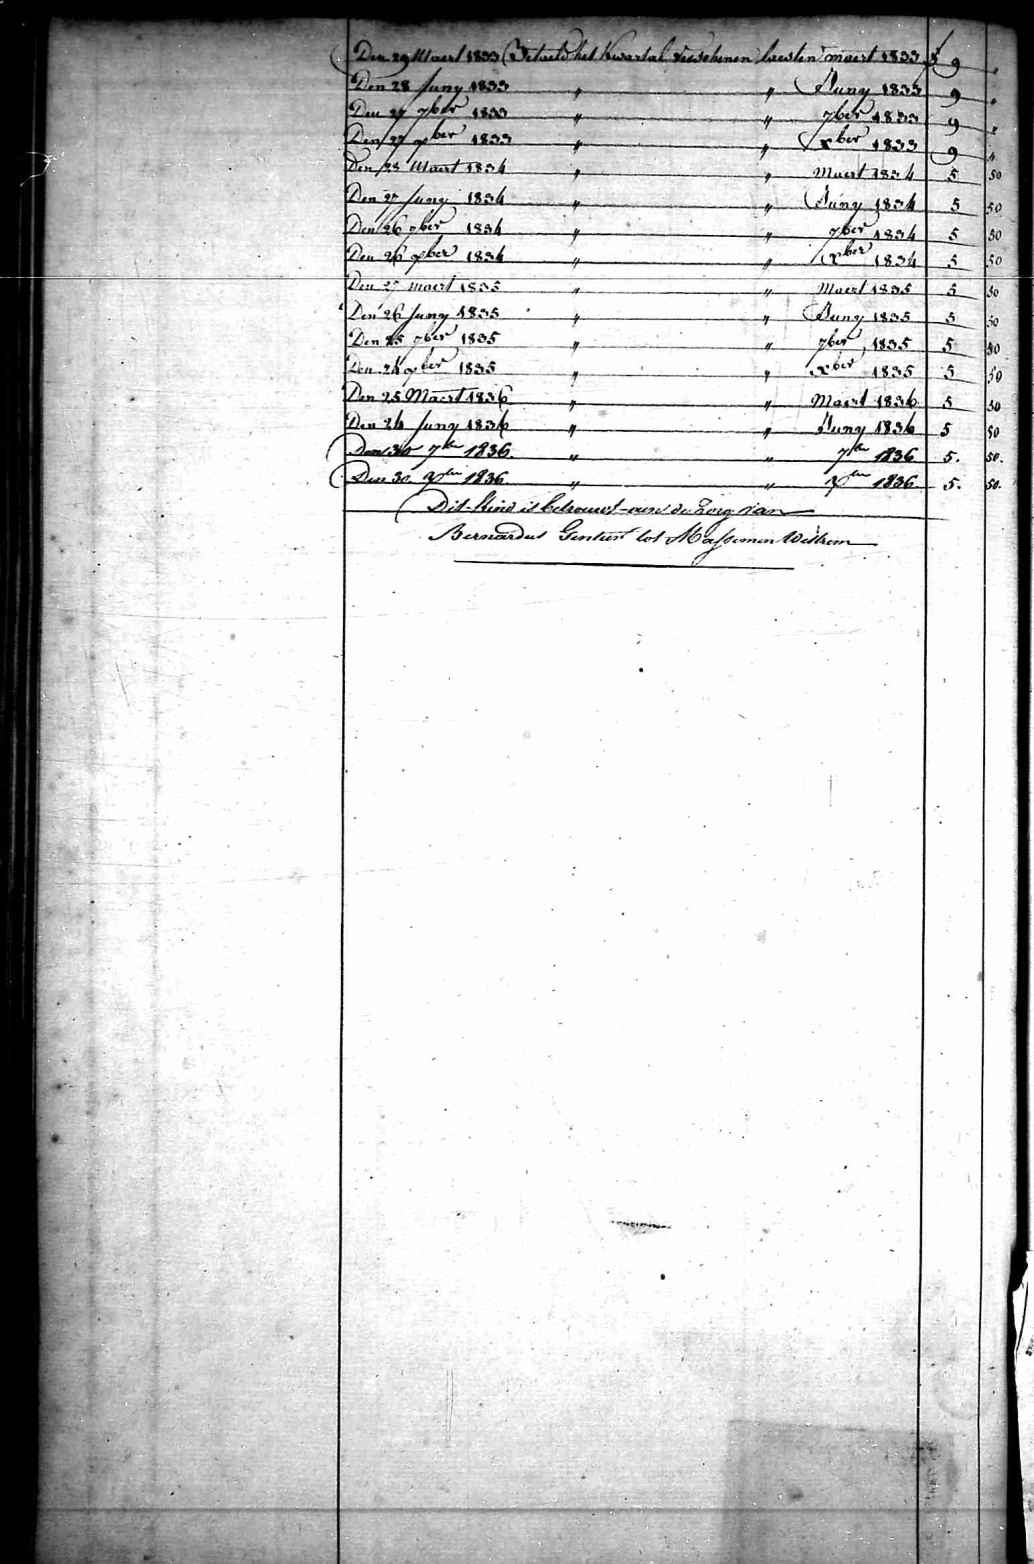 Den 29 Maert 1833 Betaeld het Kwartal verschenen laesten maert 1833 f 9 "
Den 28 Juny 1833 " " Juny 1833 9 "
Den 27 7ber 1833 " " 7ber 1833 9 "
Den 27 xber 1833 " " xber 1833 9 "
Den 28 Maert 1834 " " Maert 1834 5 50
Den 27 Juny 1834 " " Juny 1834 5 50
Den 26 7ber 1834 " " 7ber 1834 5 50
Den 26 xber 1834 " " xber 1834 5 50
Den 27 maert 1835 " " Maert 1835 5 50
Den 26 Juny 1835 " " Juny 1835 5 50
Den 25 7ber 1835 " " 7ber 1835 5 50
Den 24 xber 1835 " " xber 1835 5 50
Den 25 Maert 1836 " " Maert 1836 5 50
Den 24 Juny 1836 " " Juny 1836 5 50
Den 30 7ber 1836 " " 7ber 1836 5. 50.
Den 30 xber 1836 " " xber 1836 5. 50.
Dit kind is betrouwt aen de Zorg van
Bernardus tot Massemen Westrem